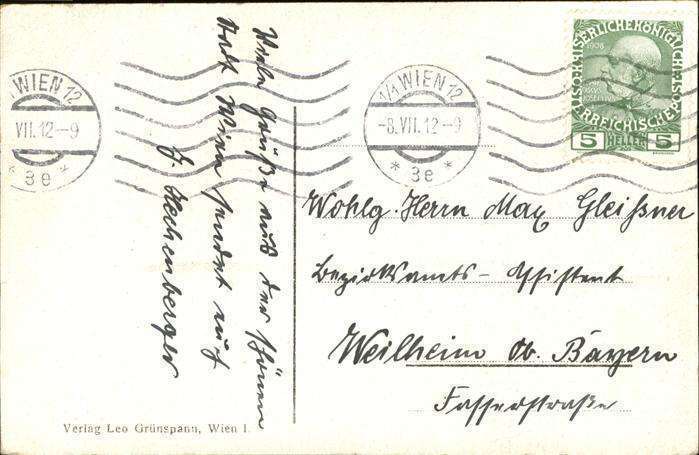 Viele Grüße aus der schönen
Stadt Wien sendet euch
J. Hechenberger
WIEN 12
VII. 12-9
* 3e *
1/1 WIEN 12
-8. VII. 12-9
* 3e *
KAISERLICHE KÖNIGLICHE
1908
ÖSTERREICHISCHE
5 HELLER 5
Wohlg. Herrn Max Gleißner
Bezirksamts- Assistent
Weilheim Ob. Bayern
Verlag Leo Grünspann, Wien I.